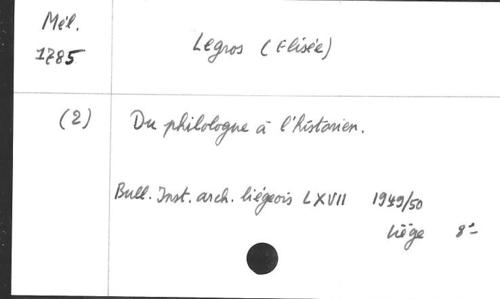 Mél.
1785
Legros (Elisée)
(2)
Du philologue à l'historien.
Bull. Inst. arch. liégeois LXVII 1949/50
Liège 8°